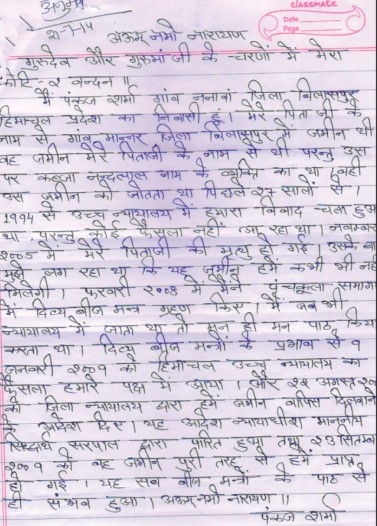 अनुभव
classmate
Date
Page
21-7-14
ॐ नमो नारायण
गुरुदेव और गुरुमां जी के चरणों में मेरा
कोटि-२ वन्दन ॥
मैं पंकज शर्मा गांव ननावां जिला बिलासपुर
हिमाचल प्रदेश का निवासी हूं। मेरे पिताजी के
नाम से गांव मान्नर जिला बिलासपुर में जमीन थी
वह जमीन मेरे पिताजी के नाम से थी परन्तु उस
पर कब्जा नन्दलाल नाम के व्यक्ति का था। वही
उस जमीन को जोतता था पिछले २७ सालों से।
1994 से उच्च न्यायालय में हमारा विवाद चला हुआ
था परन्तु कोई फैसला नहीं आ रहा था। नवम्बर
२००५ में मेरे पिताजी की मृत्यु हो गई। उसके बाद
मुझे लग रहा था कि यह जमीन हमें कभी भी नहीं
मिलेगी। फरवरी २००8 में मैंने पंचकूला समागम
में दिव्य बीज मन्त्र ग्रहण किए। मैं जब भी
न्यायालय में जाता था तो मन ही मन पाठ किया
करता था। दिव्य बीज मन्त्रों के प्रभाव से १
जनवरी २००९ को हिमाचल उच्च न्यायालय का
फैसला हमारे पक्ष में आया। और २२ अगस्त
को जिला न्यायालय द्वारा हमें जमीन वापिस दिलवाने
के आदेश दिए। यह आदेश न्यायाधीश माननीय
सिद्धार्थ सरपाल द्वारा पारित हुआ तथा २३ सितम्बर
२००९ को वह जमीन पूरी तरह से हमें प्राप्त
हो गई। यह सब बीज मन्त्रों के पाठ से
ही संभव हुआ। ॐ नमो नारायण ॥
पंकज शर्मा